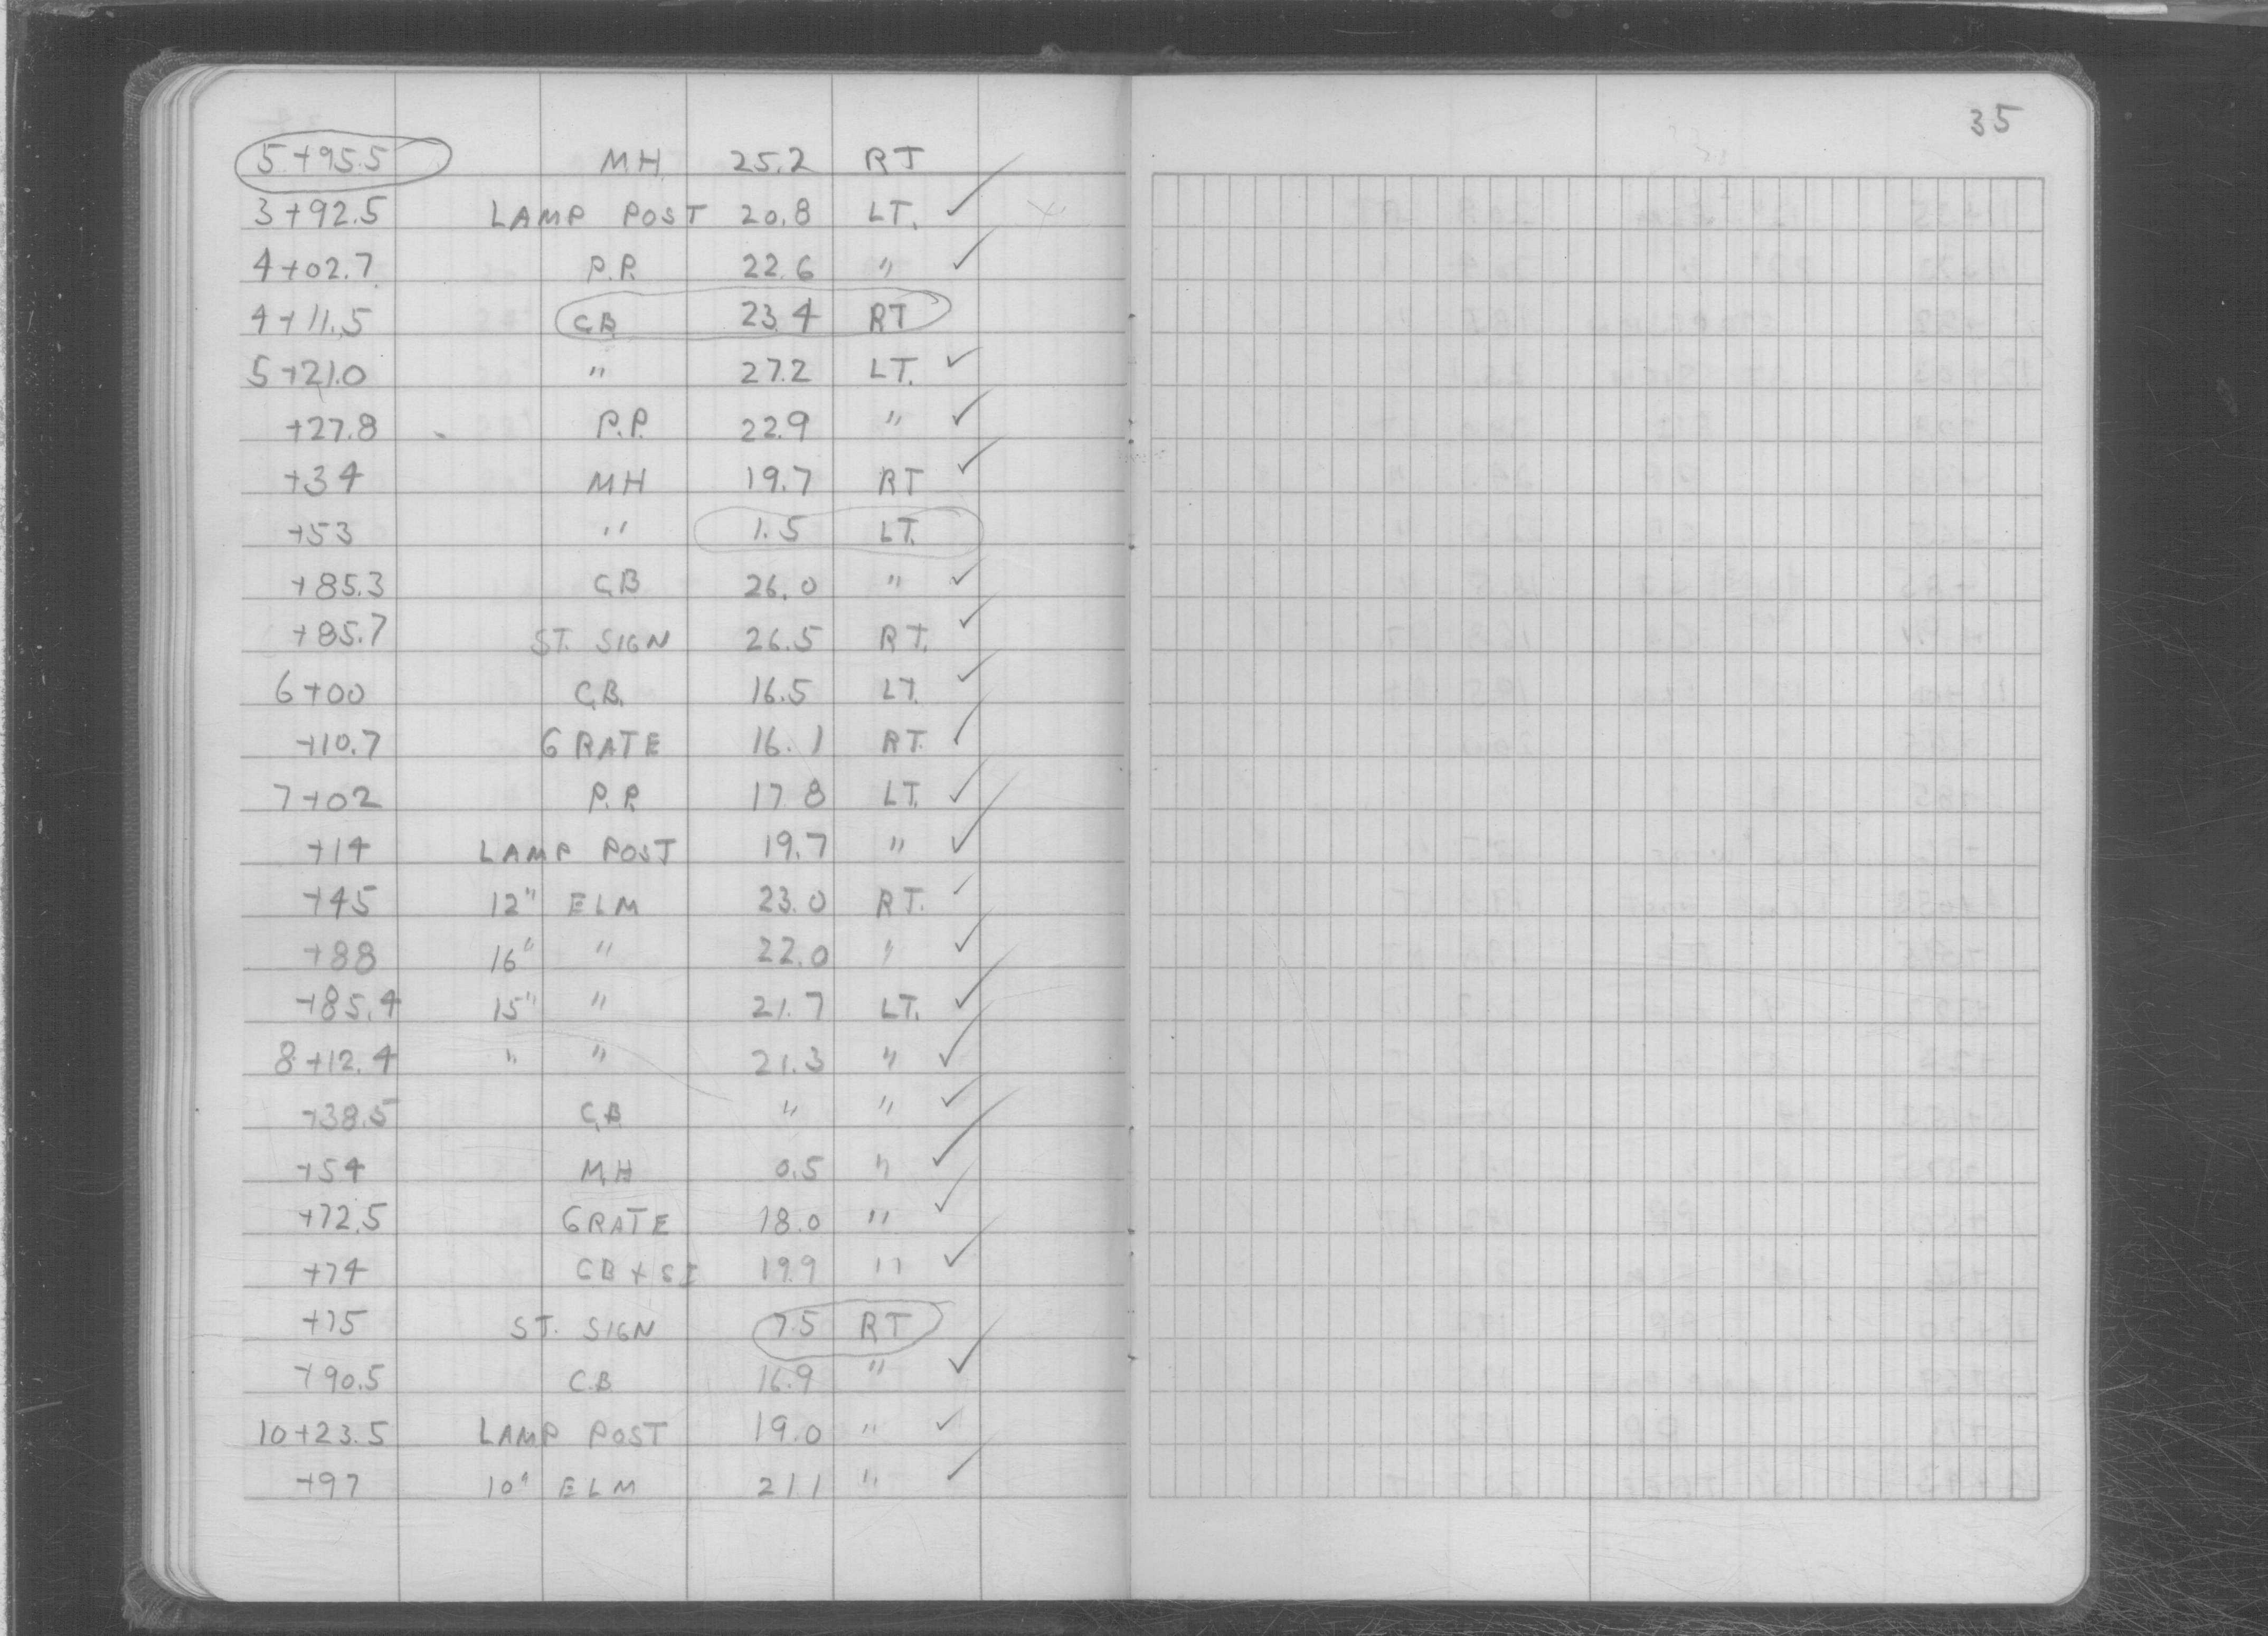 35
5+95.5 MH 25.2 RT
3+92.5 LAMP POST 20.8 LT. ✓
4+02.7 P.P. 22.6 " ✓
4+11.5 C.B. 23.4 RT
5+21.0 " 27.2 LT. ✓
+27.8 P.P. 22.9 " ✓
+34 MH 19.7 RT ✓
+53 " 1.5 LT.
+85.3 C.B 26.0 " ✓
+85.7 ST. SIGN 26.5 RT. ✓
6+00 C.B. 16.5 LT. ✓
+10.7 GRATE 16.1 RT. ✓
7+02 P.P. 17.8 LT. ✓
+14 LAMP POST 19.7 " ✓
+45 12" ELM 23.0 RT. ✓
+88 16" " 22.0 " ✓
+85.4 15" " 21.7 LT. ✓
8+12.4 " " 21.3 " ✓
+38.5 C.B " " ✓
+54 M.H 0.5 " ✓
+72.5 GRATE 18.0 " ✓
+74 CB + SI 19.9 " ✓
+75 ST. SIGN 7.5 RT
+90.5 C.B 16.9 " ✓
10+23.5 LAMP POST 19.0 " ✓
+97 10" ELM 21.1 " ✓